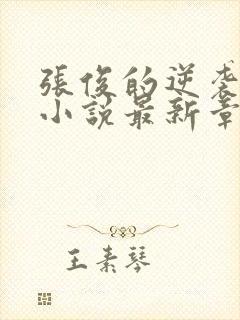 張俊的逆袭
小説最新章
王素琴